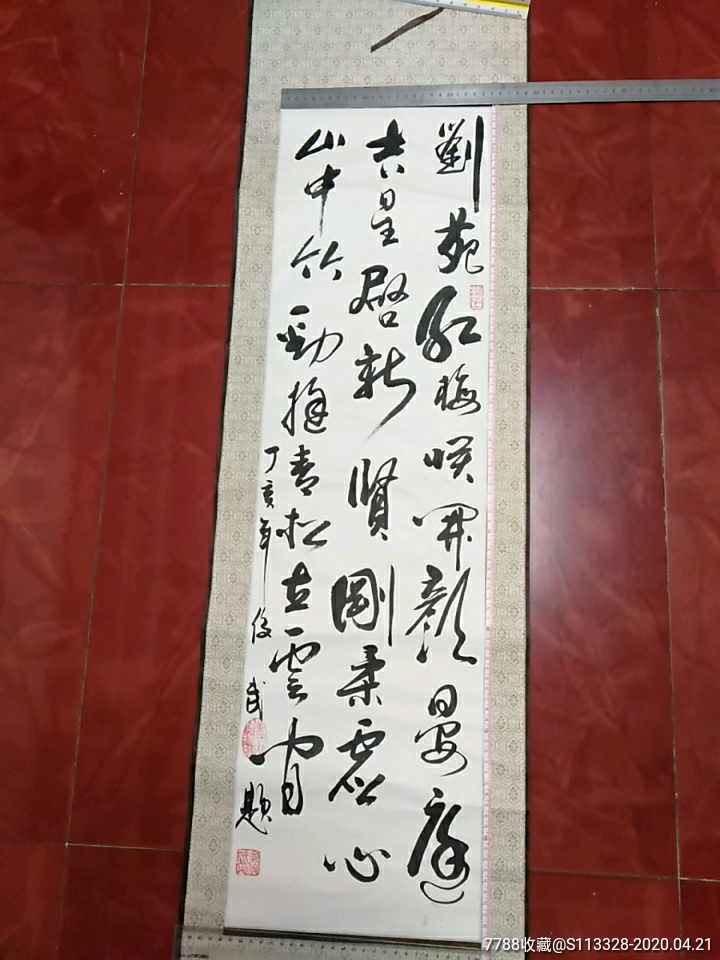 劉苑紅梅咲開顔晏庭
吉星啓新賢剛柔虚心
山中竹勁挺青松立雲間
丁亥年俊武題
7788收藏@S113328-2020.04.21